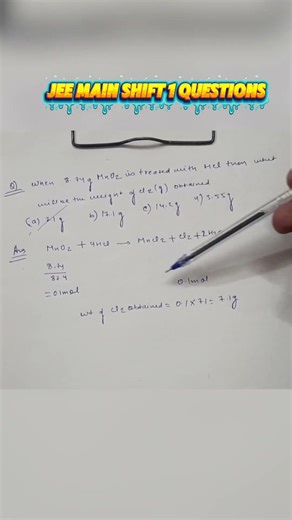 JEE MAIN SHIFT 1 QUESTIONS
Q) When 8.74 g MnO2 is treated with HCl then what
will be the weight of Cl2(g) obtained
(a) 7.1g b) 12.1g c) 14.2g d) 3.55g
Ans MnO2 + 4HCl → MnCl2 + Cl2 + 2H2O
8.74
87.4
= 0.1mol 0.1mol
wt of Cl2 obtained = 0.1 × 71 = 7.1g